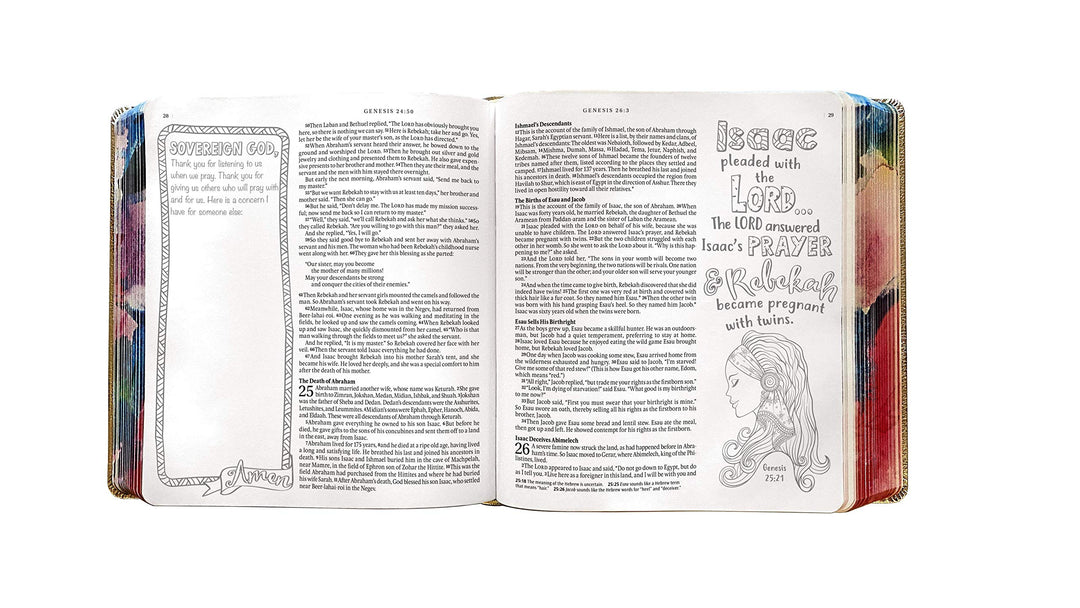 28
GENESIS 24:50
SOVEREIGN GOD,
Thank you for listening to us
when we pray. Thank you for
giving us others who will pray with
and for us. Here is a concern I
have for someone else:
Amen
50Then Laban and Bethuel replied, “The LORD has obviously brought you
here, so there is nothing we can say. 51Here is Rebekah; take her and go. Yes,
let her be the wife of your master’s son, as the LORD has directed.”
52When Abraham’s servant heard their answer, he bowed down to the
ground and worshiped the LORD. 53Then he brought out silver and gold
jewelry and clothing and presented them to Rebekah. He also gave expen-
sive presents to her brother and mother. 54Then they ate their meal, and the
servant and the men with him stayed there overnight.
But early the next morning, Abraham’s servant said, “Send me back to
my master.”
55“But we want Rebekah to stay with us at least ten days,” her brother and
mother said. “Then she can go.”
56But he said, “Don’t delay me. The LORD has made my mission success-
ful; now send me back so I can return to my master.”
57“Well,” they said, “we’ll call Rebekah and ask her what she thinks.” 58So
they called Rebekah. “Are you willing to go with this man?” they asked her.
And she replied, “Yes, I will go.”
59So they said good-bye to Rebekah and sent her away with Abraham’s
servant and his men. The woman who had been Rebekah’s childhood nurse
went along with her. 60They gave her this blessing as she parted:
“Our sister, may you become
the mother of many millions!
May your descendants be strong
and conquer the cities of their enemies.”
61Then Rebekah and her servant girls mounted the camels and followed the
man. So Abraham’s servant took Rebekah and went on his way.
62Meanwhile, Isaac, whose home was in the Negev, had returned from
Beer-lahai-roi. 63One evening as he was walking and meditating in the
fields, he looked up and saw the camels coming. 64When Rebekah looked
up and saw Isaac, she quickly dismounted from her camel. 65“Who is that
man walking through the fields to meet us?” she asked the servant.
And he replied, “It is my master.” So Rebekah covered her face with her
veil. 66Then the servant told Isaac everything he had done.
67And Isaac brought Rebekah into his mother Sarah’s tent, and she
became his wife. He loved her deeply, and she was a special comfort to him
after the death of his mother.
The Death of Abraham
25 Abraham married another wife, whose name was Keturah. 2She gave
birth to Zimran, Jokshan, Medan, Midian, Ishbak, and Shuah. 3Jokshan
was the father of Sheba and Dedan. Dedan’s descendants were the Asshurites,
Letushites, and Leummites. 4Midian’s sons were Ephah, Epher, Hanoch, Abida,
and Eldaah. These were all descendants of Abraham through Keturah.
5Abraham gave everything he owned to his son Isaac. 6But before he
died, he gave gifts to the sons of his concubines and sent them off to a land
in the east, away from Isaac.
7Abraham lived for 175 years, 8and he died at a ripe old age, having lived
a long and satisfying life. He breathed his last and joined his ancestors in
death. 9His sons Isaac and Ishmael buried him in the cave of Machpelah,
near Mamre, in the field of Ephron son of Zohar the Hittite. 10This was the
field Abraham had purchased from the Hittites and where he had buried
his wife Sarah. 11After Abraham’s death, God blessed his son Isaac, who settled
near Beer-lahai-roi in the Negev.
GENESIS 26:3
29
Ishmael’s Descendants
12This is the account of the family of Ishmael, the son of Abraham through
Hagar, Sarah’s Egyptian servant. 13Here is a list, by their names and clans, of
Ishmael’s descendants: The oldest was Nebaioth, followed by Kedar, Adbeel,
Mibsam, 14Mishma, Dumah, Massa, 15Hadad, Tema, Jetur, Naphish, and
Kedemah. 16These twelve sons of Ishmael became the founders of twelve
tribes named after them, listed according to the places they settled and
camped. 17Ishmael lived for 137 years. Then he breathed his last and joined
his ancestors in death. 18Ishmael’s descendants occupied the region from
Havilah to Shur, which is east of Egypt in the direction of Asshur. There they
lived in open hostility toward all their relatives.*
The Births of Esau and Jacob
19This is the account of the family of Isaac, the son of Abraham. 20When
Isaac was forty years old, he married Rebekah, the daughter of Bethuel the
Aramean from Paddan-aram and the sister of Laban the Aramean.
21Isaac pleaded with the LORD on behalf of his wife, because she was
unable to have children. The LORD answered Isaac’s prayer, and Rebekah
became pregnant with twins. 22But the two children struggled with each
other in her womb. So she went to ask the LORD about it. “Why is this hap-
pening to me?” she asked.
23And the LORD told her, “The sons in your womb will become two
nations. From the very beginning, the two nations will be rivals. One nation
will be stronger than the other; and your older son will serve your younger
son.”
24And when the time came to give birth, Rebekah discovered that she did
indeed have twins! 25The first one was very red at birth and covered with
thick hair like a fur coat. So they named him Esau.* 26Then the other twin
was born with his hand grasping Esau’s heel. So they named him Jacob.*
Isaac was sixty years old when the twins were born.
Esau Sells His Birthright
27As the boys grew up, Esau became a skillful hunter. He was an outdoors-
man, but Jacob had a quiet temperament, preferring to stay at home.
28Isaac loved Esau because he enjoyed eating the wild game Esau brought
home, but Rebekah loved Jacob.
29One day when Jacob was cooking some stew, Esau arrived home from
the wilderness exhausted and hungry. 30Esau said to Jacob, “I’m starved!
Give me some of that red stew!” (This is how Esau got his other name, Edom,
which means “red.”)
31“All right,” Jacob replied, “but trade me your rights as the firstborn son.”
32“Look, I’m dying of starvation!” said Esau. “What good is my birthright
to me now?”
33But Jacob said, “First you must swear that your birthright is mine.”
So Esau swore an oath, thereby selling all his rights as the firstborn to his
brother, Jacob.
34Then Jacob gave Esau some bread and lentil stew. Esau ate the meal,
then got up and left. He showed contempt for his rights as the firstborn.
Isaac Deceives Abimelech
26 A severe famine now struck the land, as had happened before in Abra-
ham’s time. So Isaac moved to Gerar, where Abimelech, king of the Phi-
listines, lived.
2The LORD appeared to Isaac and said, “Do not go down to Egypt, but do
as I tell you. 3Live here as a foreigner in this land, and I will be with you and
25:18 The meaning of the Hebrew is uncertain. 25:25 Esau sounds like a Hebrew term
that means “hair.” 25:26 Jacob sounds like the Hebrew words for “heel” and “deceiver.”
Isaac
pleaded with
the
LORD...
The LORD answered
Isaac’s PRAYER
& Rebekah
became pregnant
with twins.
Genesis
25:21